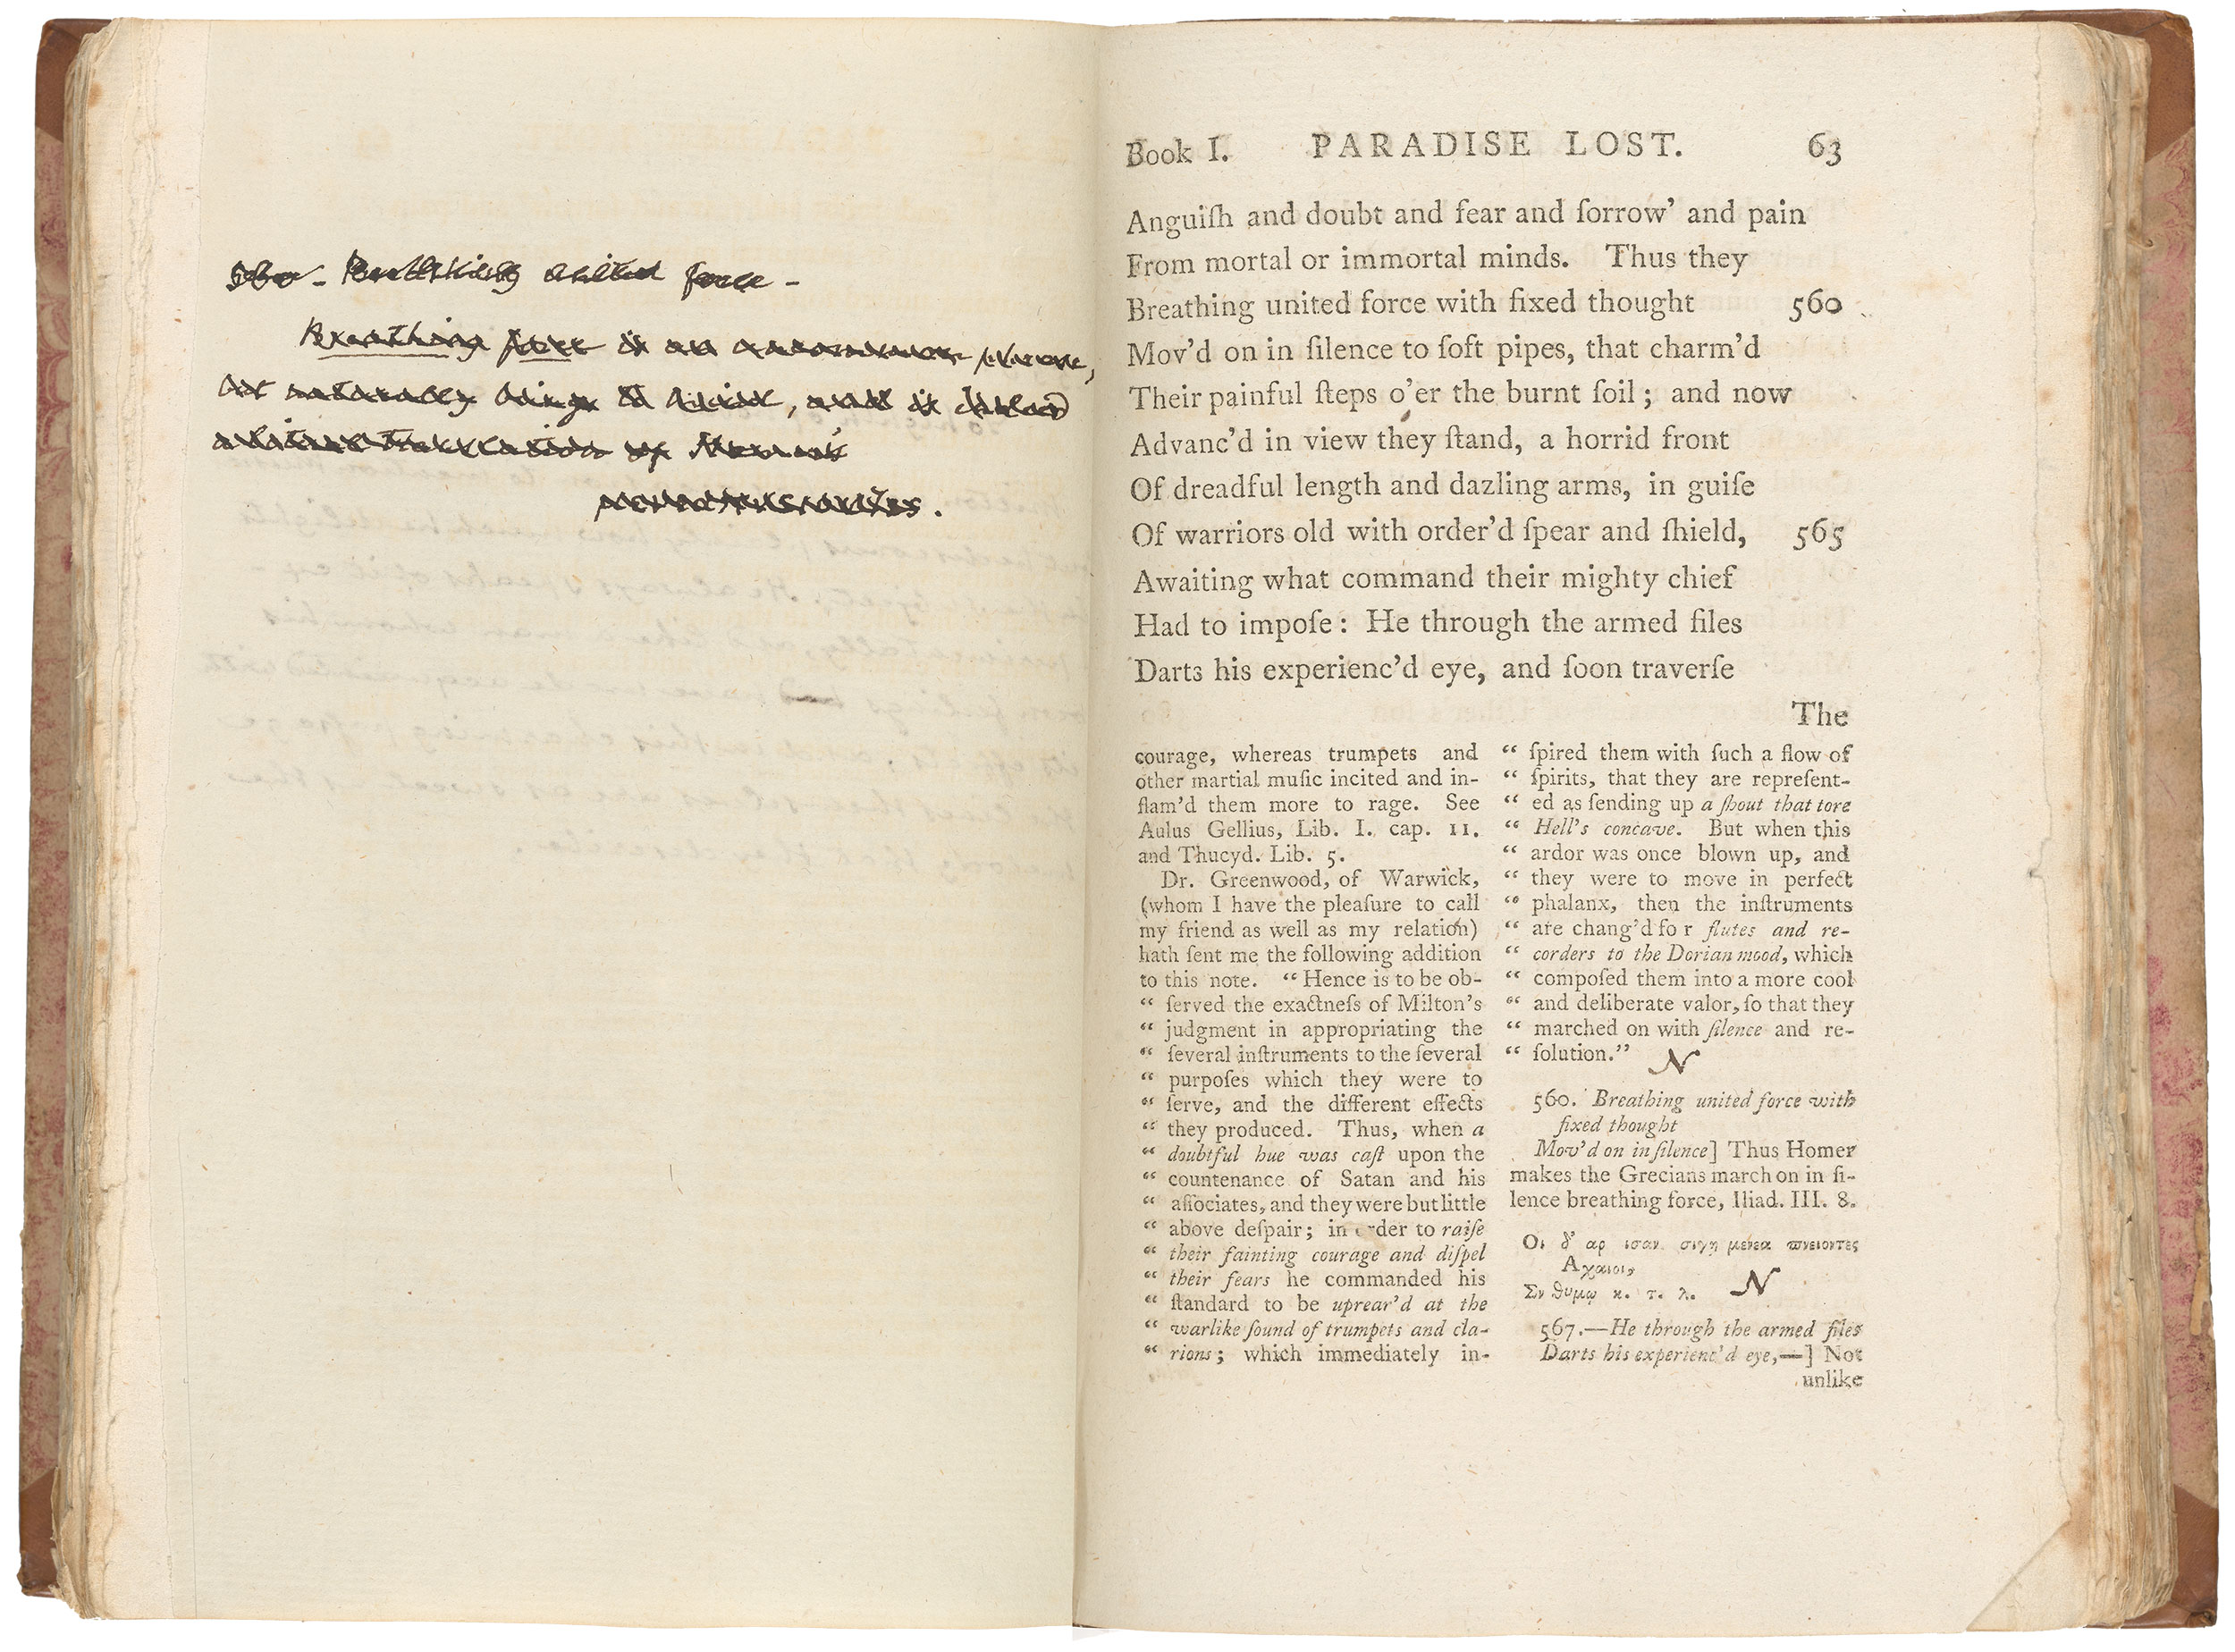 560 - Breathing united force -
Breathing force is an uncommon phrase,
literal translation of Homer's
Book I. PARADISE LOST. 63
Anguiſh and doubt and fear and ſorrow' and pain
From mortal or immortal minds. Thus they
Breathing united force with fixed thought 560
Mov'd on in ſilence to ſoft pipes, that charm'd
Their painful ſteps o'er the burnt ſoil; and now
Advanc'd in view they ſtand, a horrid front
Of dreadful length and dazling arms, in guiſe
Of warriors old with order'd ſpear and ſhield, 565
Awaiting what command their mighty chief
Had to impoſe: He through the armed files
Darts his experienc'd eye, and ſoon traverſe
The
courage, whereas trumpets and
other martial muſic incited and in-
flam'd them more to rage. See
Aulus Gellius, Lib. I. cap. 11.
and Thucyd. Lib. 5.
Dr. Greenwood, of Warwick,
(whom I have the pleaſure to call
my friend as well as my relation)
hath ſent me the following addition
to this note. “Hence is to be ob-
“ ſerved the exactneſs of Milton's
“ judgment in appropriating the
“ ſeveral inſtruments to the ſeveral
“ purpoſes which they were to
“ ſerve, and the different effects
“ they produced. Thus, when a
“ doubtful hue was caſt upon the
“ countenance of Satan and his
“ aſſociates, and they were but little
“ above deſpair; in order to raiſe
“ their fainting courage and diſpel
“ their fears he commanded his
“ ſtandard to be uprear'd at the
“ warlike ſound of trumpets and cla-
“ rions; which immediately in-
“ ſpired them with ſuch a flow of
“ ſpirits, that they are repreſent-
“ ed as ſending up a ſhout that tore
“ Hell's concave. But when this
“ ardor was once blown up, and
“ they were to move in perfect
“ phalanx, then the inſtruments
“ are chang'd fo r flutes and re-
“ corders to the Dorian mood, which
“ compoſed them into a more cool
“ and deliberate valor, ſo that they
“ marched on with ſilence and re-
“ ſolution.” N
560. Breathing united force with
fixed thought
Mov'd on in ſilence] Thus Homer
makes the Grecians march on in ſi-
lence breathing force, Iliad. III. 8.
Οι δ' αρ ισαν σιγη μενεα πνειοντες
Αχαιοι,
Εν θυμῳ κ. τ. λ. N
567.—He through the armed files
Darts his experienc'd eye,—] Not
unlike